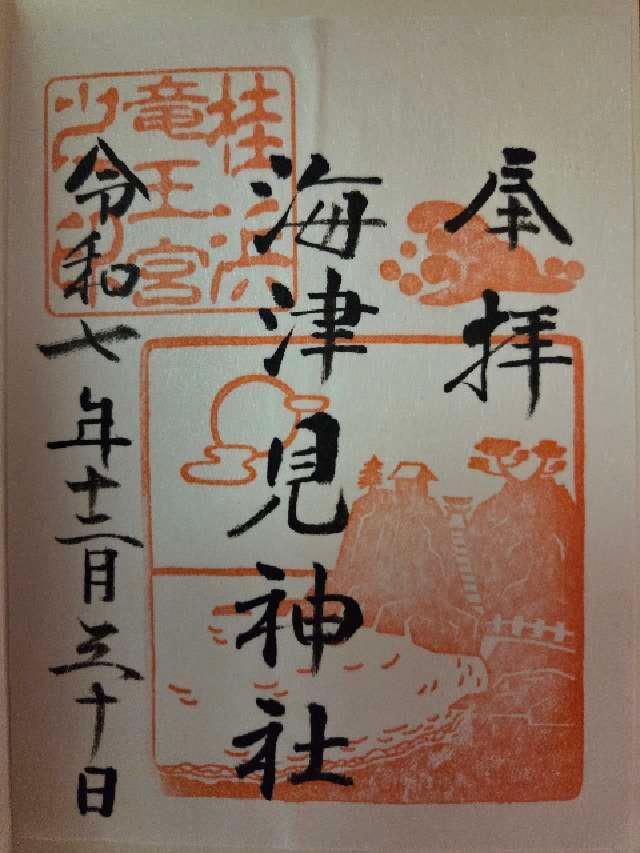 奉拝
海津見神社
令和七年十二月三十日
桂浜
竜王宮